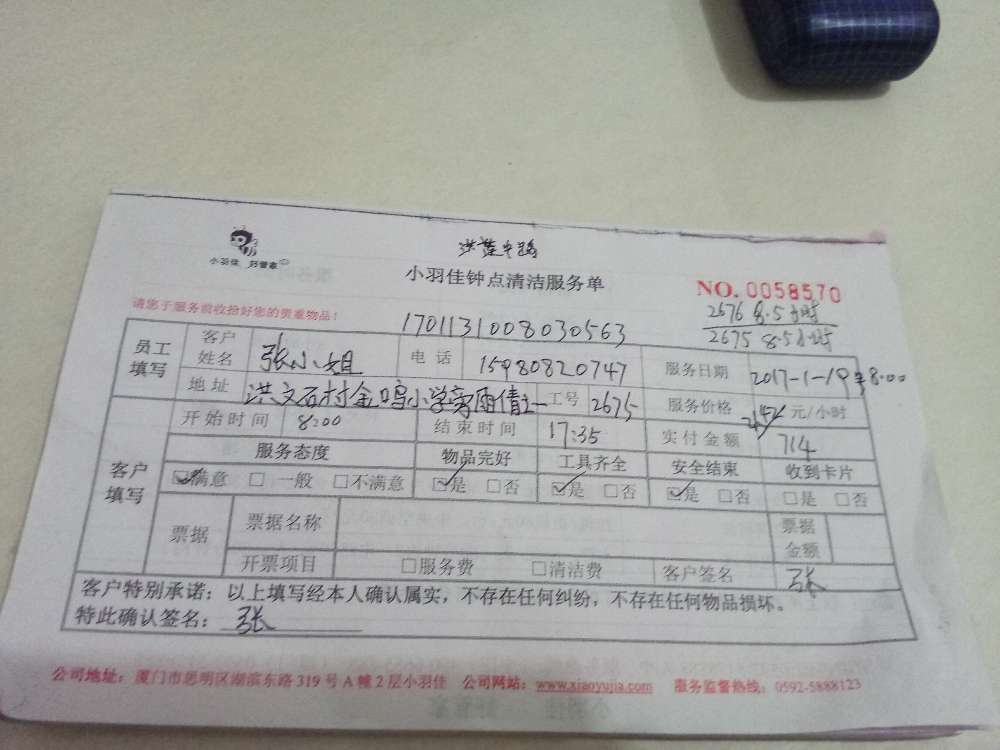 小羽佳 好管家
小羽佳钟点清洁服务单
NO. 0058570
请您于服务前收拾好您的贵重物品！
1701131008030563
2676 8.5小时
2675 8.5小时
员工填写 客户姓名 张小姐 电话 15980820747 服务日期 2017-1-19 8:00
地址 洪文石村金鸣小学旁雨倩 工号 2675 服务价格 元/小时
客户填写 开始时间 8:00 结束时间 17:35 实付金额 714
服务态度 物品完好 工具齐全 安全结束 收到卡片
☑满意 □一般 □不满意 ☑是 □否 ☑是 □否 ☑是 □否 □是 □否
票据 票据名称 票据金额
开票项目 □服务费 □清洁费 客户签名 张
客户特别承诺：以上填写经本人确认属实，不存在任何纠纷，不存在任何物品损坏。
特此确认签名：张
公司地址：厦门市思明区湖滨东路319号A幢2层小羽佳 公司网站：www.xiaoyujia.com 服务监督热线：0592-5888123